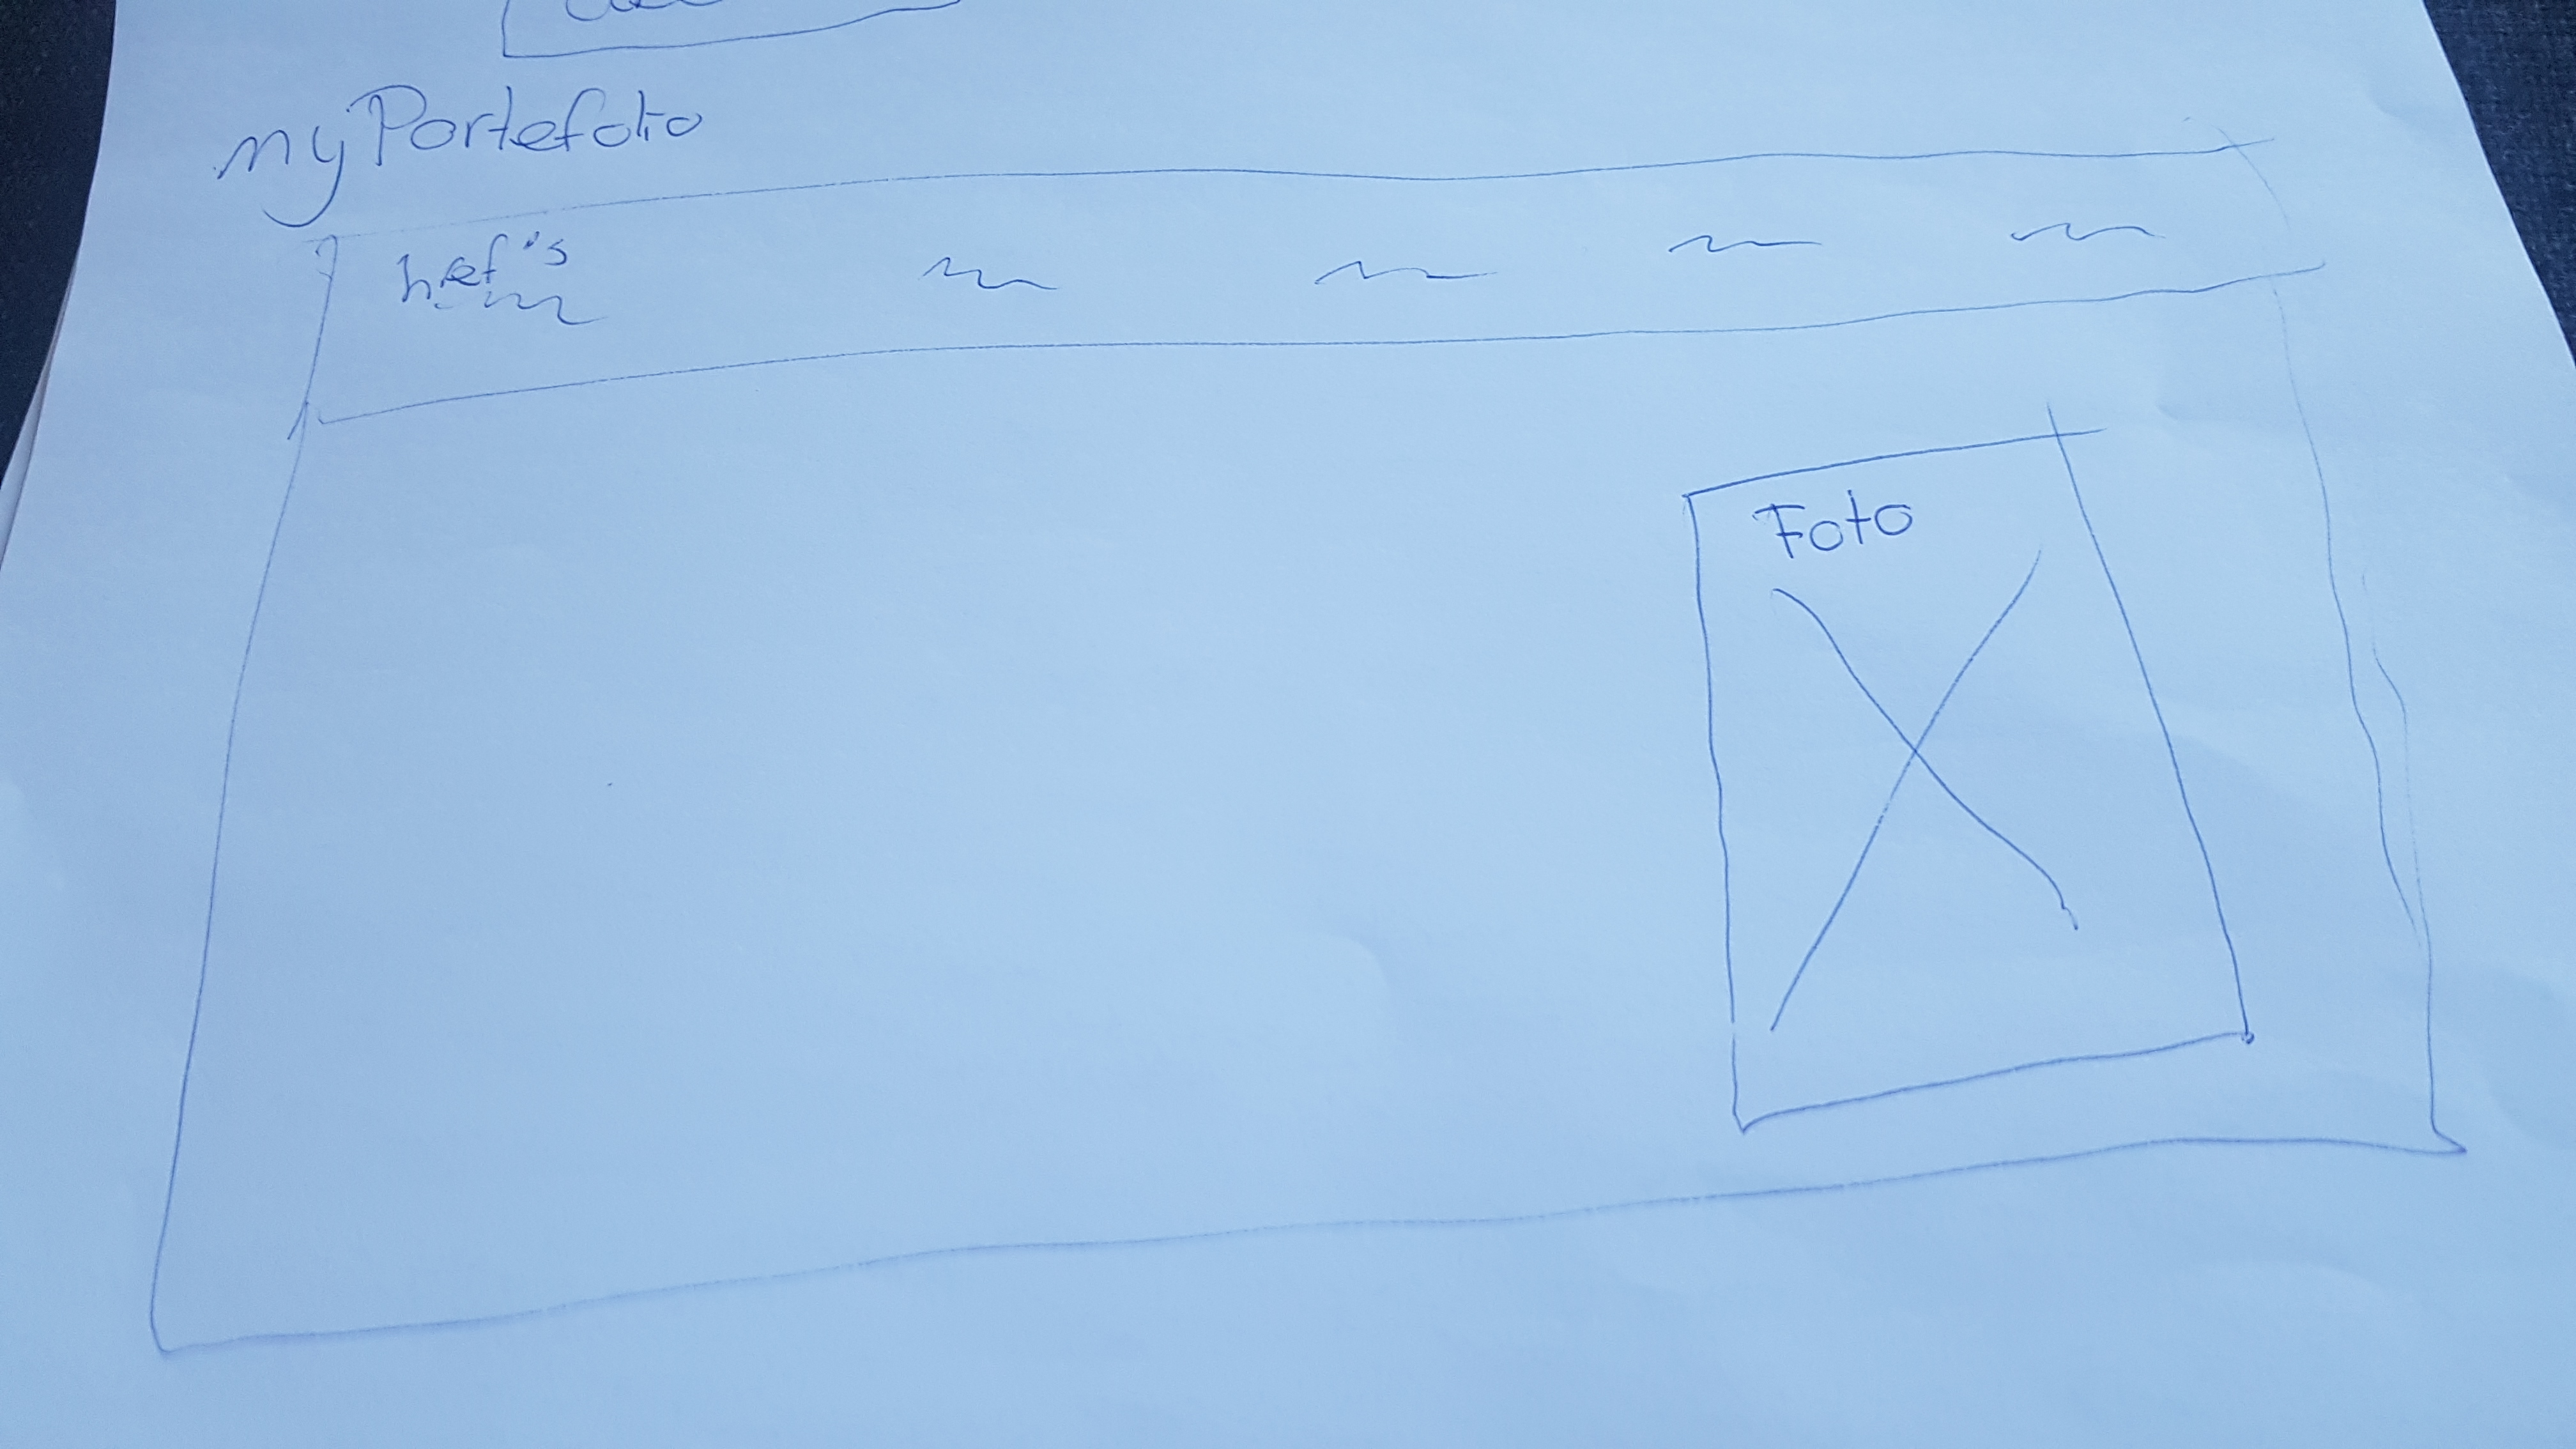 myPortefolio
href's
Foto